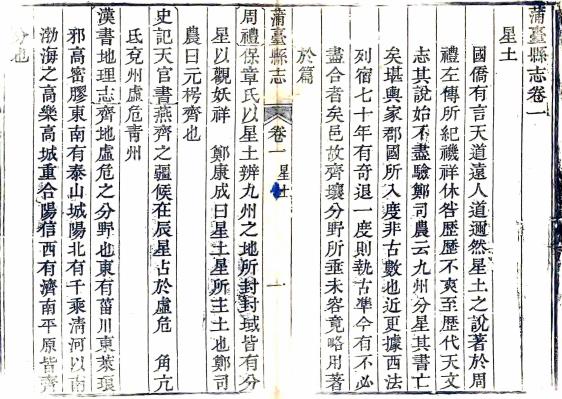 蒲臺縣志卷一
星土
國僑有言天道遠人道邇然星土之說著於周
禮左傳所紀禨祥休咎歷歷不爽至歷代天文
志其說始不盡驗鄭司農云九州分星其書亡
矣堪輿家郡國所入度非古數也近更據西法
列宿七十年有奇退一度則執古凖今有不必
盡合者矣邑故齊壤分野所垂未容竟略用著
於篇
蒲臺縣志 卷一 星土 一
周禮保章氏以星土辨九州之地所封封域皆有分
星以觀妖祥 鄭康成曰星土星所主土也鄭司
農曰元枵齊也
史記天官書燕齊之疆候在辰星占於虛危 角亢
氐兗州虛危青州
漢書地理志齊地虛危之分野也東有菑川東萊琅
邪高密膠東南有泰山城陽北有千乘淸河以南
渤海之高樂高城重合陽信西有濟南平原皆齊
分也